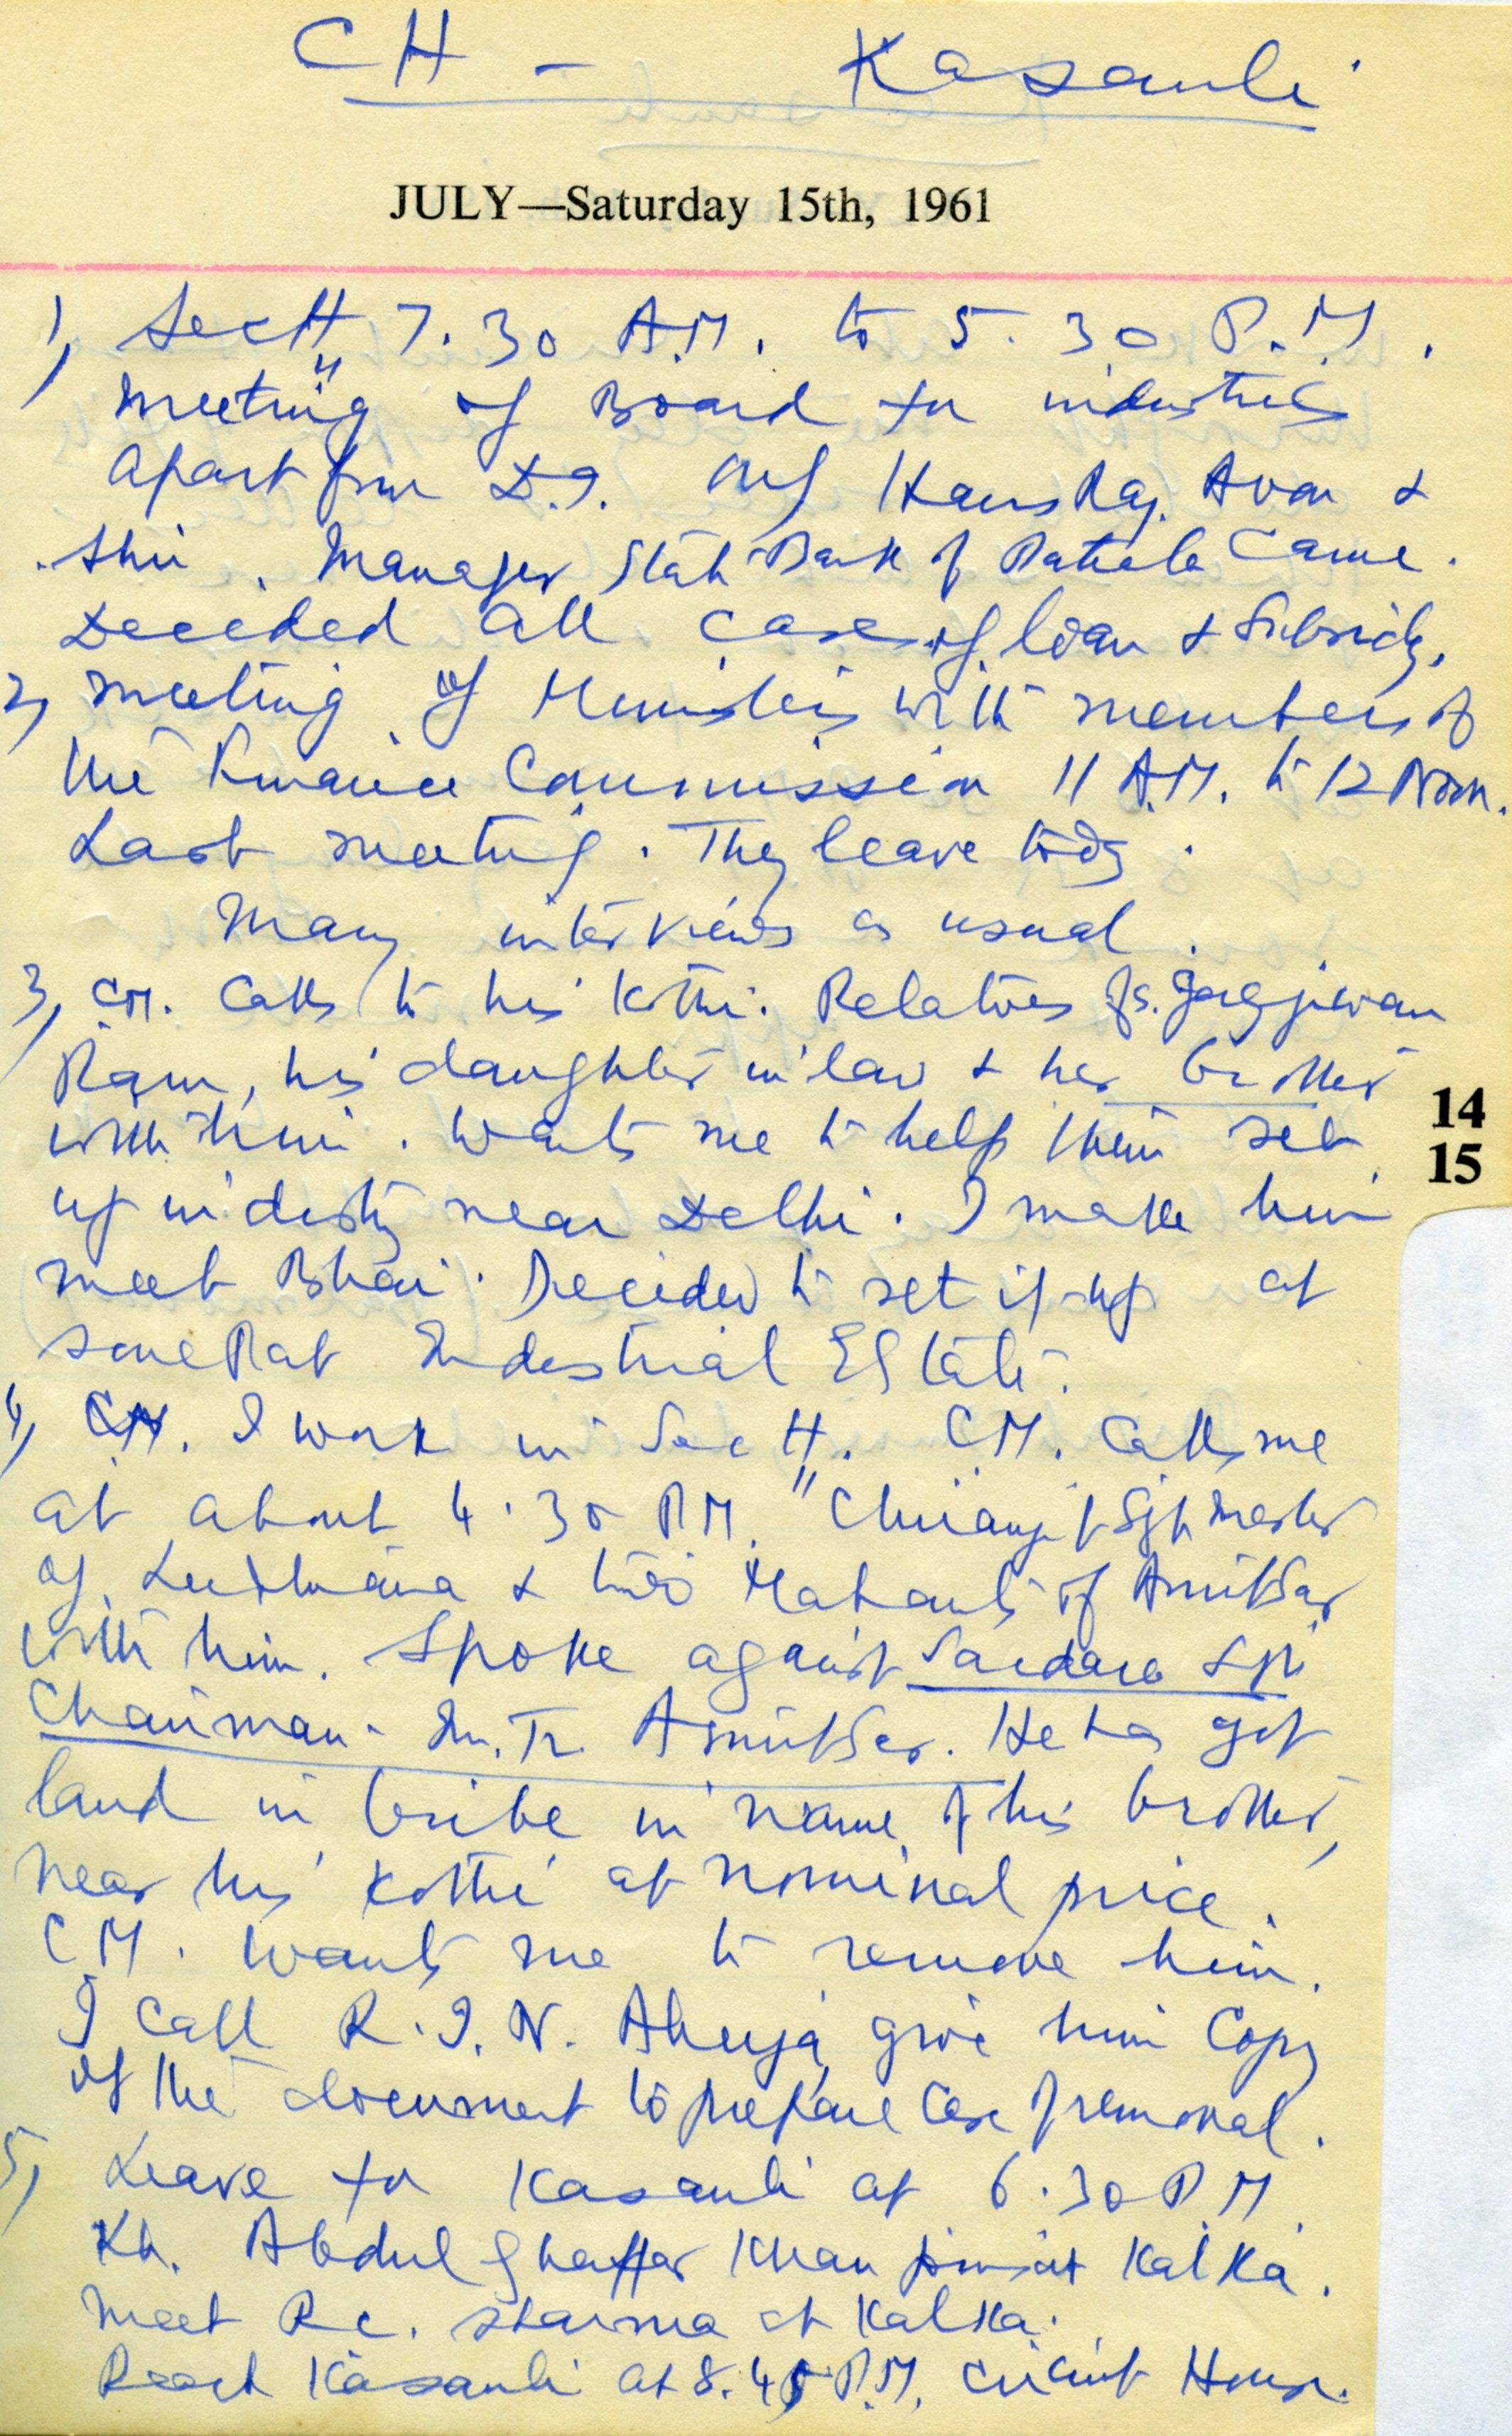 CH - Kasauli
JULY—Saturday 15th, 1961
1) Sectt 7.30 A.M. to 5.30 P.M.
Meeting of Board for industries
apart from D.I. Hans Raj &
Shri . Manager State Bank of Patiala came.
Decided all cases of loan & subsidy.
2) Meeting of Ministers with members of
the Finance Commission 11 A.M. to 12 Noon.
Last meeting. They leave today.
Many interviews as usual.
3) C.M. calls to his Kothi. Relatives of S. Jagjiwan
Ram, his daughter in law & her brother
with him. Wants me to help them set
14
15
up industry near Delhi. I make him
meet Bhai. Decided to set it up at
sonepat Industrial EState.
4) I work in Sectt. C.M. calls me
at about 4.30 P.M.
of Ludhiana & two Mahants of Amritsar
with him. Spoke against Sardara
Chairman - Im. Tr. Amritsar. He has got
land in bribe in name of his brother,
near his Kothi at nominal price.
C.M. wants me to remove him.
I call R.I.N. Ahuja, give him Copy
of the document to prepare case of removal.
5) Leave for Kasauli at 6.30 P.M.
Kh. Abdul Ghaffar Khan Kalka.
Meet R.C. Sharma at Kalka.
Reach Kasauli at 8.45 P.M. Circuit House.